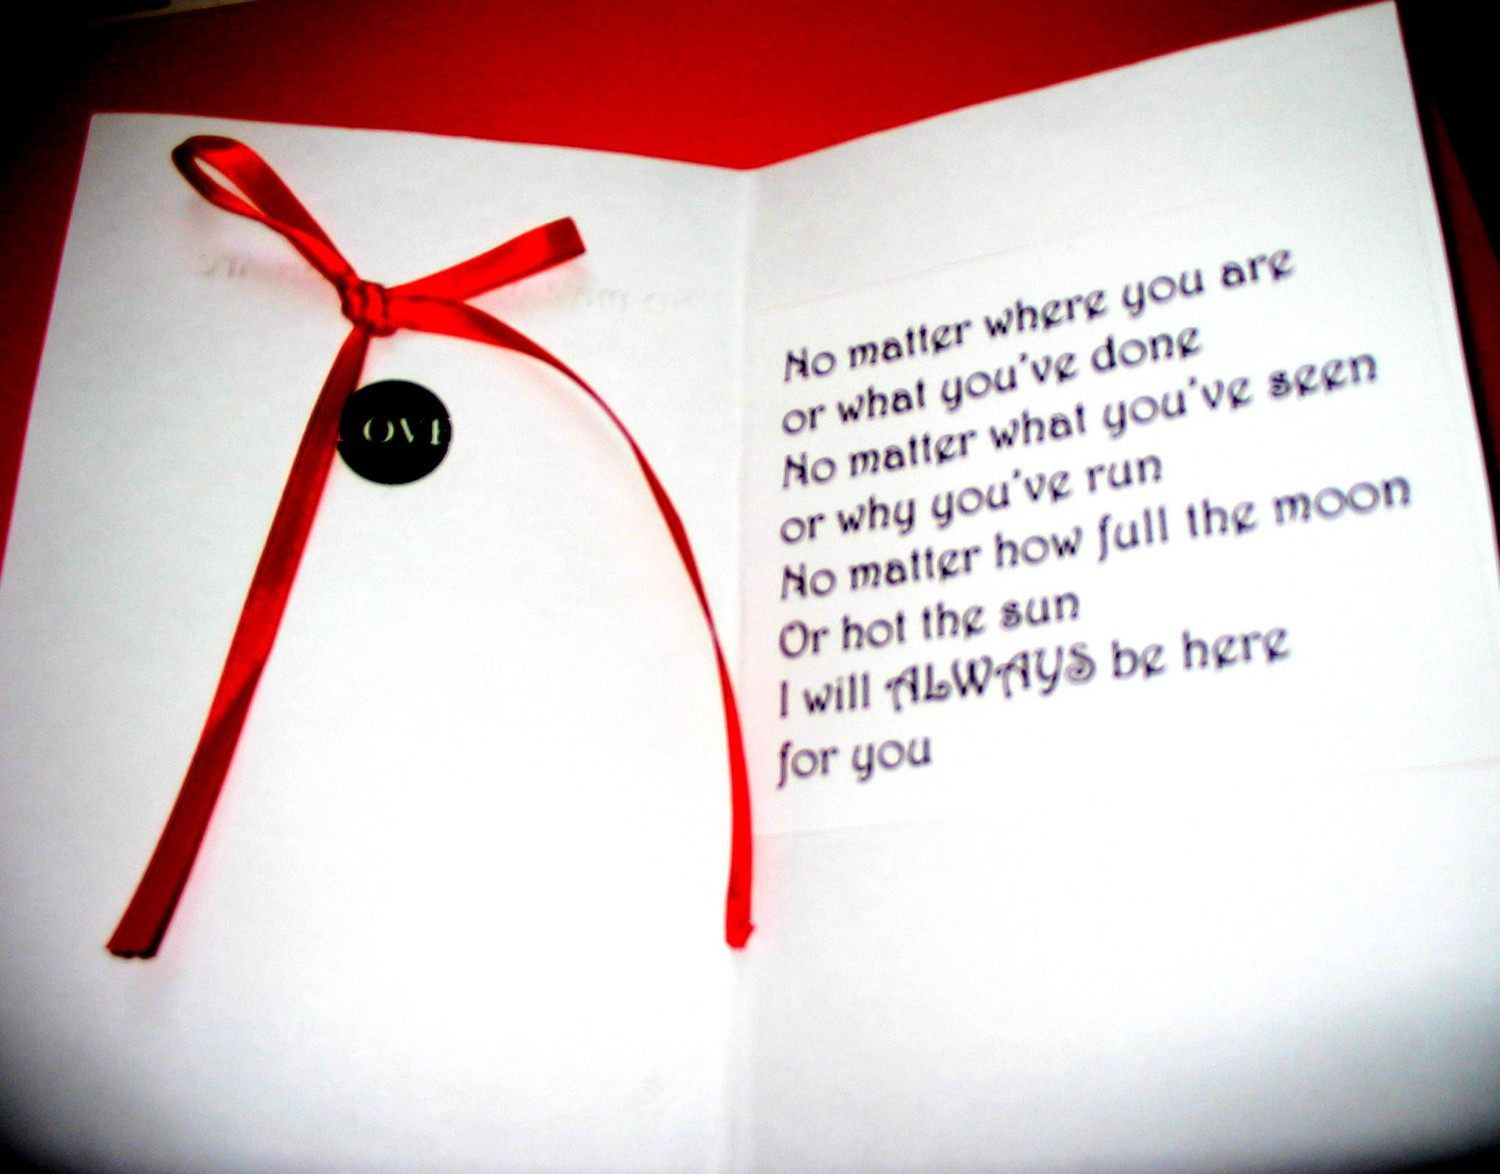 LOVE
No matter where you are
or what you've done
No matter what you've seen
or why you've run
No matter how full the moon
Or hot the sun
I will ALWAYS be here
for you